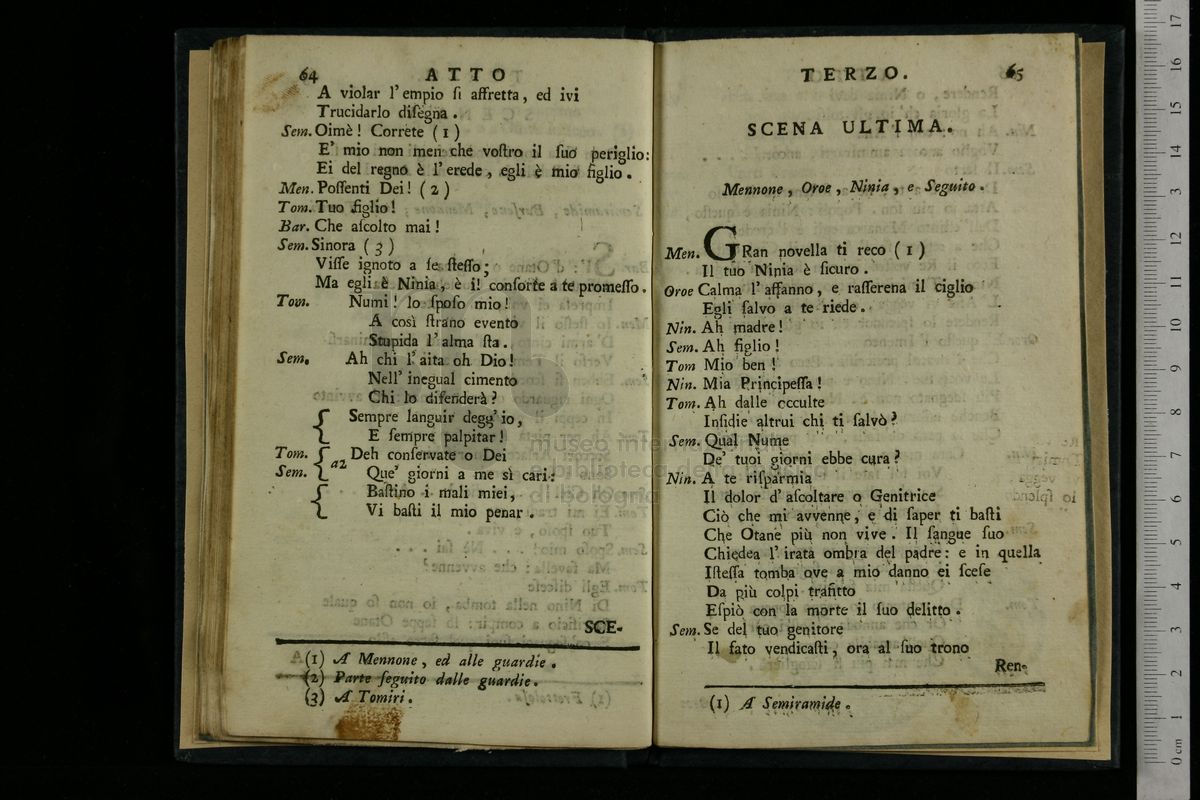 64 ATTO
A violar l'empio ſi affretta, ed ivi
Trucidarlo diſegna.
Sem. Oimè! Correte (1)
E' mio non men che voſtro il ſuo periglio:
Ei del regno è l'erede, egli è mio figlio.
Men. Poſſenti Dei! (2)
Tom. Tuo figlio!
Bar. Che aſcolto mai!
Sem. Sinora (3)
Viſſe ignoto a ſe ſteſſo;
Ma egli è Ninia, è il conſorte a te promeſſo.
Tom. Numi! lo ſpoſo mio!
A così ſtrano evento
Stupida l'alma ſta.
Sem. Ah chi l'aita oh Dio!
Nell' inegual cimento
Chi lo difenderà?
Sempre languir degg'io,
E ſempre palpitar!
Tom. Deh conſervate o Dei
Sem. a2 Que' giorni a me sì cari:
Baſtino i mali miei,
Vi baſti il mio penar.
SCE-
(1) A Mennone, ed alle guardie.
(2) Parte ſeguito dalle guardie.
(3) A Tomiri.
TERZO. 65
SCENA ULTIMA.
Mennone, Oroe, Ninia, e Seguito.
Men. GRan novella ti reco (1)
Il tuo Ninia è ſicuro.
Oroe Calma l'affanno, e raſſerena il ciglio
Egli ſalvo a te riede.
Nin. Ah madre!
Sem. Ah figlio!
Tom Mio ben!
Nin. Mia Principeſſa!
Tom. Ah dalle occulte
Inſidie altrui chi ti ſalvò?
Sem. Qual Nume
De' tuoi giorni ebbe cura?
Nin. A te riſparmia
Il dolor d'aſcoltare o Genitrice
Ciò che mi avvenne, e di ſaper ti baſti
Che Otane più non vive. Il ſangue ſuo
Chiedea l'irata ombra del padre: e in quella
Iſteſſa tomba ove a mio danno ei ſceſe
Da più colpi trafitto
Eſpiò con la morte il ſuo delitto.
Sem. Se del tuo genitore
Il fato vendicaſti, ora al ſuo trono
Ren-
(1) A Semiramide.
museo internazionale
e biblioteca della musica
di bologna
17
16
15
14
13
12
11
10
9
8
7
6
5
4
3
2
1
0 cm